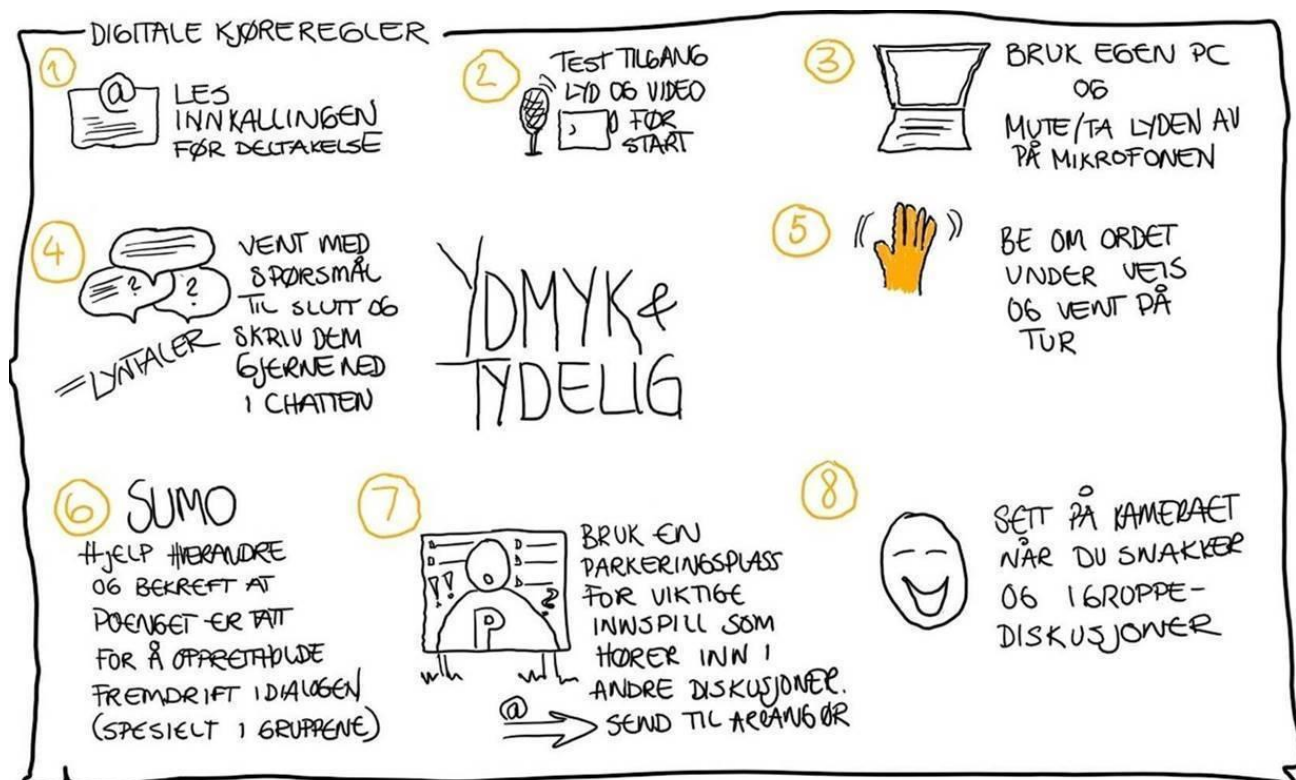 DIGITALE KJØREREGLER
1
@
LES
INNKALLINGEN
FØR DELTAKELSE
2
TEST TILGANG
LYD OG VIDEO
FØR
START
3
BRUK EGEN PC
OG
MUTE/TA LYDEN AV
PÅ MIKROFONEN
4
? ?
= LYNTALER
VENT MED
SPØRSMÅL
TIL SLUTT OG
SKRIV DEM
GJERNE NED
I CHATTEN
YDMYK &
TYDELIG
5
BE OM ORDET
UNDER VEIS
OG VENT PÅ
TUR
6
SUMO
HJELP HVERANDRE
OG BEKREFT AT
POENGET ER TATT
FOR Å OPPRETHOLDE
FREMDRIFT I DIALOGEN
(SPESIELT I GRUPPENE)
7
!! ?
P
BRUK EN
PARKERINGSPLASS
FOR VIKTIGE
INNSPILL SOM
HØRER INN I
ANDRE DISKUSJONER.
@
SEND TIL ARRANGØR
8
SETT PÅ KAMERAET
NÅR DU SNAKKER
OG I GRUPPE-
DISKUSJONER